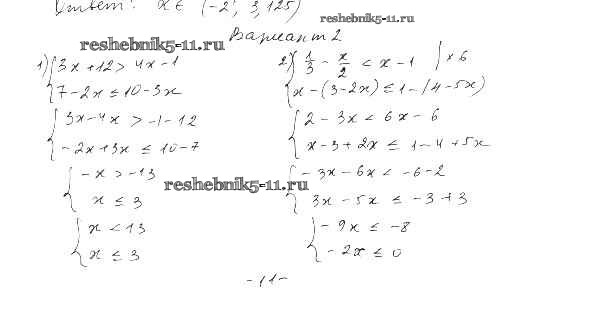 Ответ: x ∈ (-2; 3,125)
reshebnik5-11.ru
Вариант 2
reshebnik5-11.ru
1) { 3x + 12 > 4x - 1
7 - 2x ≤ 10 - 3x
{ 3x - 4x > -1 - 12
-2x + 3x ≤ 10 - 7
{ -x > -13
x ≤ 3
{ x < 13
x ≤ 3
2) { 1/3 - x/2 < x - 1 | × 6
x - (3 - 2x) ≤ 1 - (4 - 5x)
{ 2 - 3x < 6x - 6
x - 3 + 2x ≤ 1 - 4 + 5x
{ -3x - 6x < -6 - 2
3x - 5x ≤ -3 + 3
{ -9x ≤ -8
-2x ≤ 0
reshebnik5-11.ru
-11-